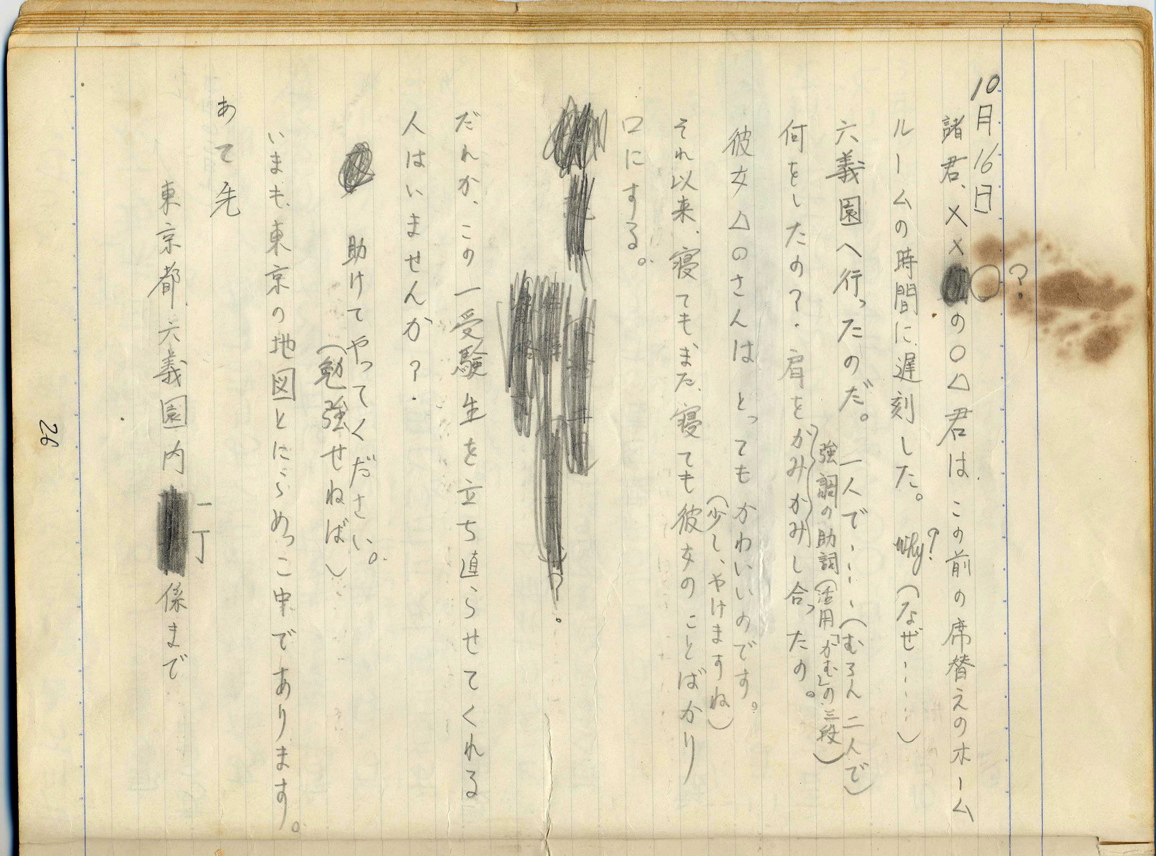 10月16日
諸君、××○の○△君は この前の席替えのホーム
?
ルームの時間に遅刻した。 why? (なぜ……)
六義園へ行ったのだ。 一人で……(むろん 二人で)
強調の助詞(活用「かむ」の三段)
何をしたの?.肩をかみかみし合ったの。
彼女△○さんは とっても かわいいのです。
(少し、やけますね)
それ以来、寝てもまた、寝ても彼女のことばかり
口にする。
だれか、この一受験生を立ち直らせてくれる
人はいませんか?.
助けてやってください。
(勉強せねば)
いまも、東京の地図とにらめっこ中であります。
あて先
東京都、六義園内 一丁 係まで
26